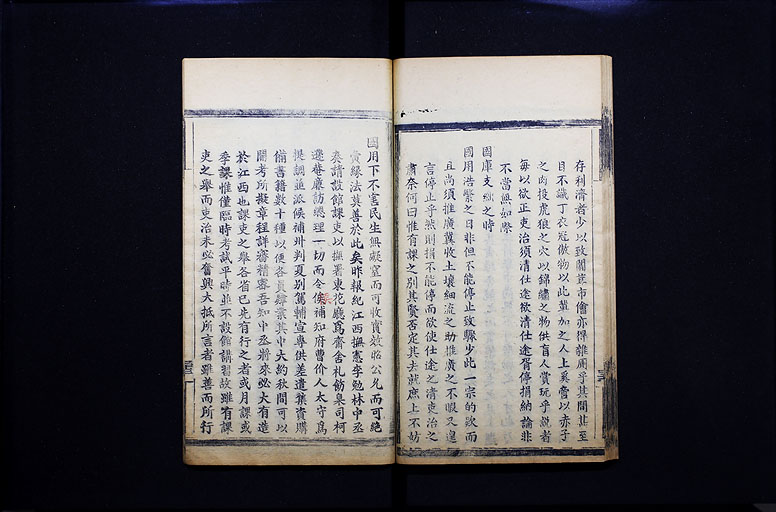 存利濟者少以致闤闠市儈亦得雜廁乎其間甚至
目不識丁衣冠傲物以此輩加之人上奚啻以赤子
之肉投虎狼之穴以錦繡之物供盲人賞玩乎說者
每以欲正吏治須清仕途欲清仕途胥停捐納論非
不當無如際
國庫支絀之時
國用浩繁之日非但不能停止致驟少此一宗的款而
且尚須推廣冀收土壤細流之助推廣之不暇又遑
言停止乎然則捐不能停而欲使仕途之清吏治之
肅奈何曰惟有課之別其賢否定其去就庶上不妨
國用下不害民生無礙窒而可收實效昭公允而可絕
夤緣法莫善於此矣昨報紀江西撫憲李勉林中丞
奏請設館課吏以撫署東花廳為齋舍札飭臬司柯
遜菴廉訪總理一切而令候補知府曹价人太守為
提調並派候補州判夏別駕輔宣專供差遣集資購
備書籍數十種以便各員肄業其中大約秋間可以
開考所擬章程詳審精密吾知中丞將來必大有造
於江西也課吏之舉各省已先有行之者或月課或
季課惟僅臨時考試平時並不設館講習故雖有課
吏之舉而吏治未必奮興大抵所言者雖善而所行